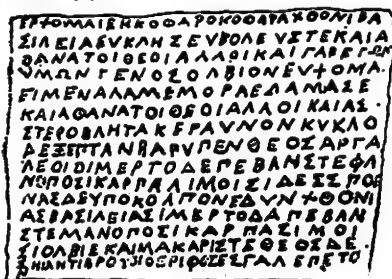 ΕΡΤΟΜΑΙΕΚΚΟΘΑΡΟΚΟΘΑΡΑΧΘΟΝΙΒΑ
ΣΙΛΕΙΑΕΥΚΛΗΣΕΥΒΟΛΕΥΣΤΕΚΑΙΑ
ΘΑΝΑΤΟΙΘΕΟΙΑΛΛΟΙΚΑΙΓΑΡΕΓΩΝ
ΥΜΩΝΓΕΝΟΣΟΛΒΙΟΝΕΥΧΟΜΑ
ΕΙΜΕΝΑΛΑΜΕΜΟΡΑΕΔΑΜΑΣΕ
ΚΑΙΑΘΑΝΑΤΟΙΘΕΟΙΑΛΛΟΙΚΑΙΑΣ
ΣΤΕΡΟΒΛΗΤΑΚΕΡΑΥΝΟΝΚΥΚΛΟ
ΔΕΞΕΠΤΑΝΒΑΡΥΠΕΝΘΕΟΣΑΡΓΑ
ΛΕΟΙΟΙΜΕΡΤΟΔΕΠΕΒΑΝΣΤΕΦΑ
ΝΟΠΟΣΙΚΑΡΠΑΛΙΜΟΙΣΙΔΕΣΣΠΟΙ
ΝΑΣΔΕΥΠΟΚΟΛΠΟΝΕΔΥΝΧΘΟΝΙ
ΑΣΒΑΣΙΛΕΙΑΣΙΜΕΡΤΟΔΑΠΕΒΑΝ
ΣΤΕΜΑΝΟΠΟΣΙΚΑΡΠΑΣΙΜΟΙ
ΣΙΟΛΒΙΕΚΑΙΜΑΚΑΡΙΣΤΕΘΕΟΣΔΕ